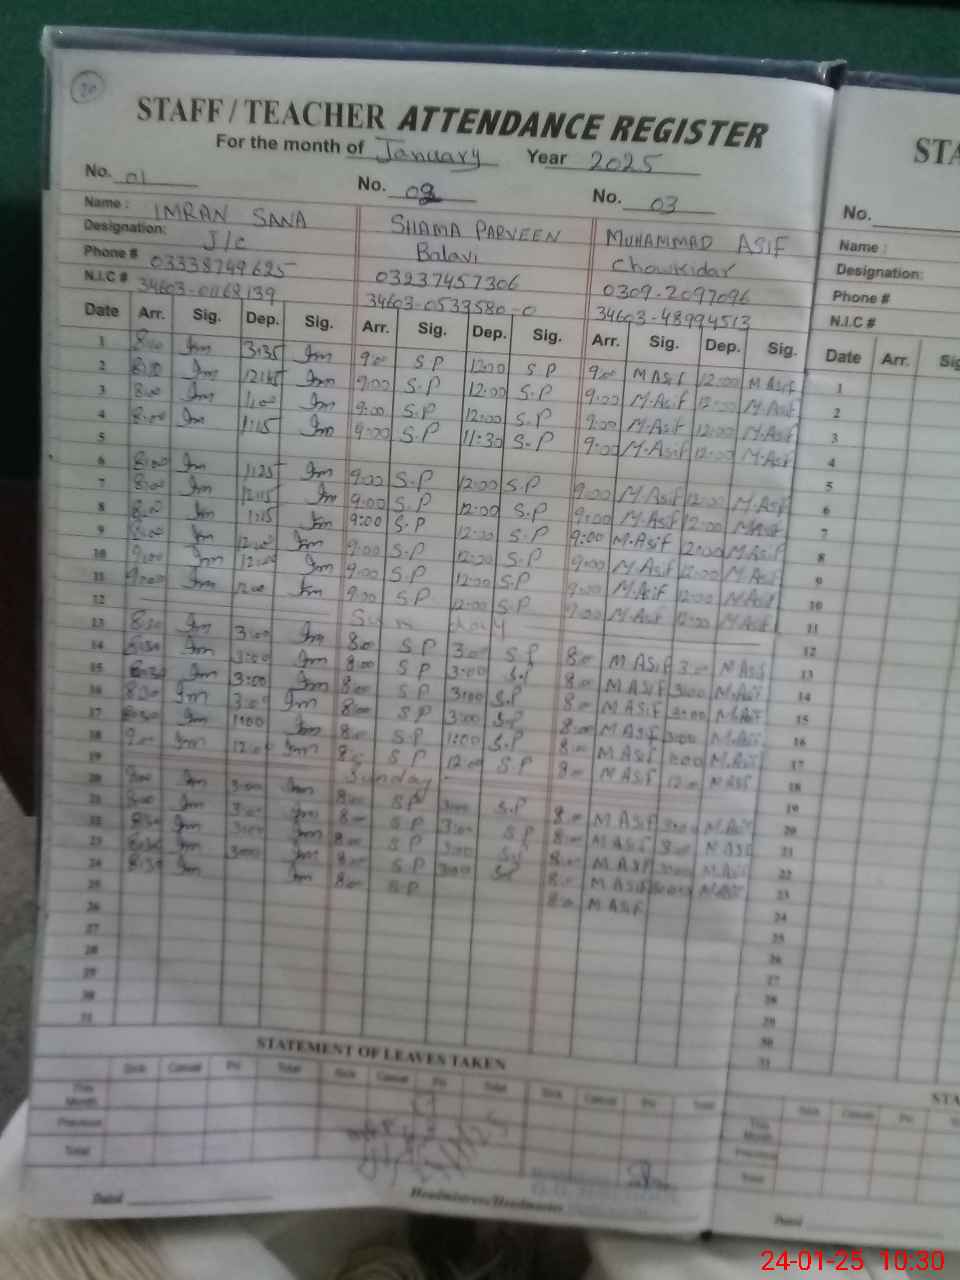 20
STAFF / TEACHER ATTENDANCE REGISTER
For the month of January Year 2025
No. 01 No. 02 No. 03
Name : IMRAN SANA SHAMA PARVEEN MUHAMMAD ASIF
Designation: J/C Balavi Chowkidar
Phone # 03338749625 03237457306 0309-2097096
N.I.C # 34603-0533580-0 34603-48994513
Date Arr. Sig. Dep. Sig. Arr. Sig. Dep. Sig. Arr. Sig. Dep. Sig.
1 8:00 Im 3:35 Im 9:00 S P 12:00 S P 9:00 M Asif 12:00 M Asif
2 Im 12:15 Im 9:00 S.P 12:00 S.P 9:00 M.Asif 12:00 M.Asif
3 8:00 Im 1:00 Im 9:00 S.P 12:00 S.P 9:00 M.Asif 12:00 M.Asif
4 8:00 Im 1:15 Im 9:00 S.P 11:30 S.P 9:00 M.Asif 12:00 M.Asif
5
6 8:00 Im 1:25 Im 9:00 S.P 12:00 S.P 9:00 M.Asif 12:00 M.Asif
7 8:00 Im 12:15 Im 9:00 S.P 12:00 S.P 9:00 M.Asif 12:00 M.Asif
8 8:00 Im 1:15 Im 9:00 S.P 12:00 S.P 9:00 M.Asif 12:00 M.Asif
9 8:00 Im 12:00 Im 9:00 S.P 12:00 S.P 9:00 M.Asif 12:00 M.Asif
10 9:00 Im 12:00 Im 9:00 S.P 12:00 S.P 9:00 M.Asif 12:00 M.Asif
11 9:00 Im 12:00 Im 9:00 S.P 12:00 S.P 9:00 M.Asif 12:00 M.Asif
12 Sunday
13 8:30 Im 3:00 Im 8:00 S P 3:00 S P 8:00 M ASif 3:00 M ASif
14 8:30 Im 3:00 Im 8:00 S P 3:00 S.P 8:00 M ASif 3:00 M.Asif
15 8:30 Im 3:00 Im 8:00 S P 3:00 S.P 8:00 M ASif 3:00 M.Asif
16 8:30 Im 3:00 Im 8:00 S P 3:00 S.P 8:00 M ASif 3:00 M.Asif
17 8:30 Im 1:00 Im 8:00 S P 1:00 S.P 8:00 M ASif 1:00 M.Asif
18 9:00 Im 12:00 Im S P 12:00 S.P 8:00 M ASif 12:00 M ASif
19 Sunday
20 Im 3:00 Im 8:00 S P 3:00 S.P 8:00 M ASif 3:00 M.Asif
21 Im 3:00 Im 8:00 S P 3:00 S P 8:00 M ASif 3:00 M ASif
22 8:30 Im 3:00 Im 8:00 S P 3:00 8:00 M ASif 3:00 M.Asif
23 8:30 Im 3:00 Im 8:00 S P 3:00 S.P 8:00 M ASif M.Asif
24 8:30 Im Im 8:00 S P 8:00 M ASif
25
26
27
28
29
30
31
STATEMENT OF LEAVES TAKEN
Sick Casual Pri Total Sick Casual Pri Total Sick Casual Pri Total
This Month
Previous
Total
Dated
Headmistress/Headmaster
STA
No.
Name :
Designation:
Phone #
N.I.C #
Date Arr. Sig
1
2
3
4
5
6
7
8
9
10
11
12
13
14
15
16
17
18
19
20
21
22
23
24
25
26
27
28
29
30
31
STA
Sick Casual Pri
This Month
Previous
Total
Dated
24-01-25 10:30